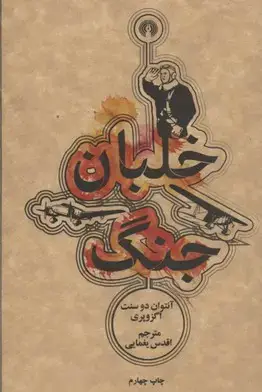 خلبان
جنگ
آنتوان دو سنت
اگزوپری
مترجم
اقدس یغمایی
چاپ چهارم